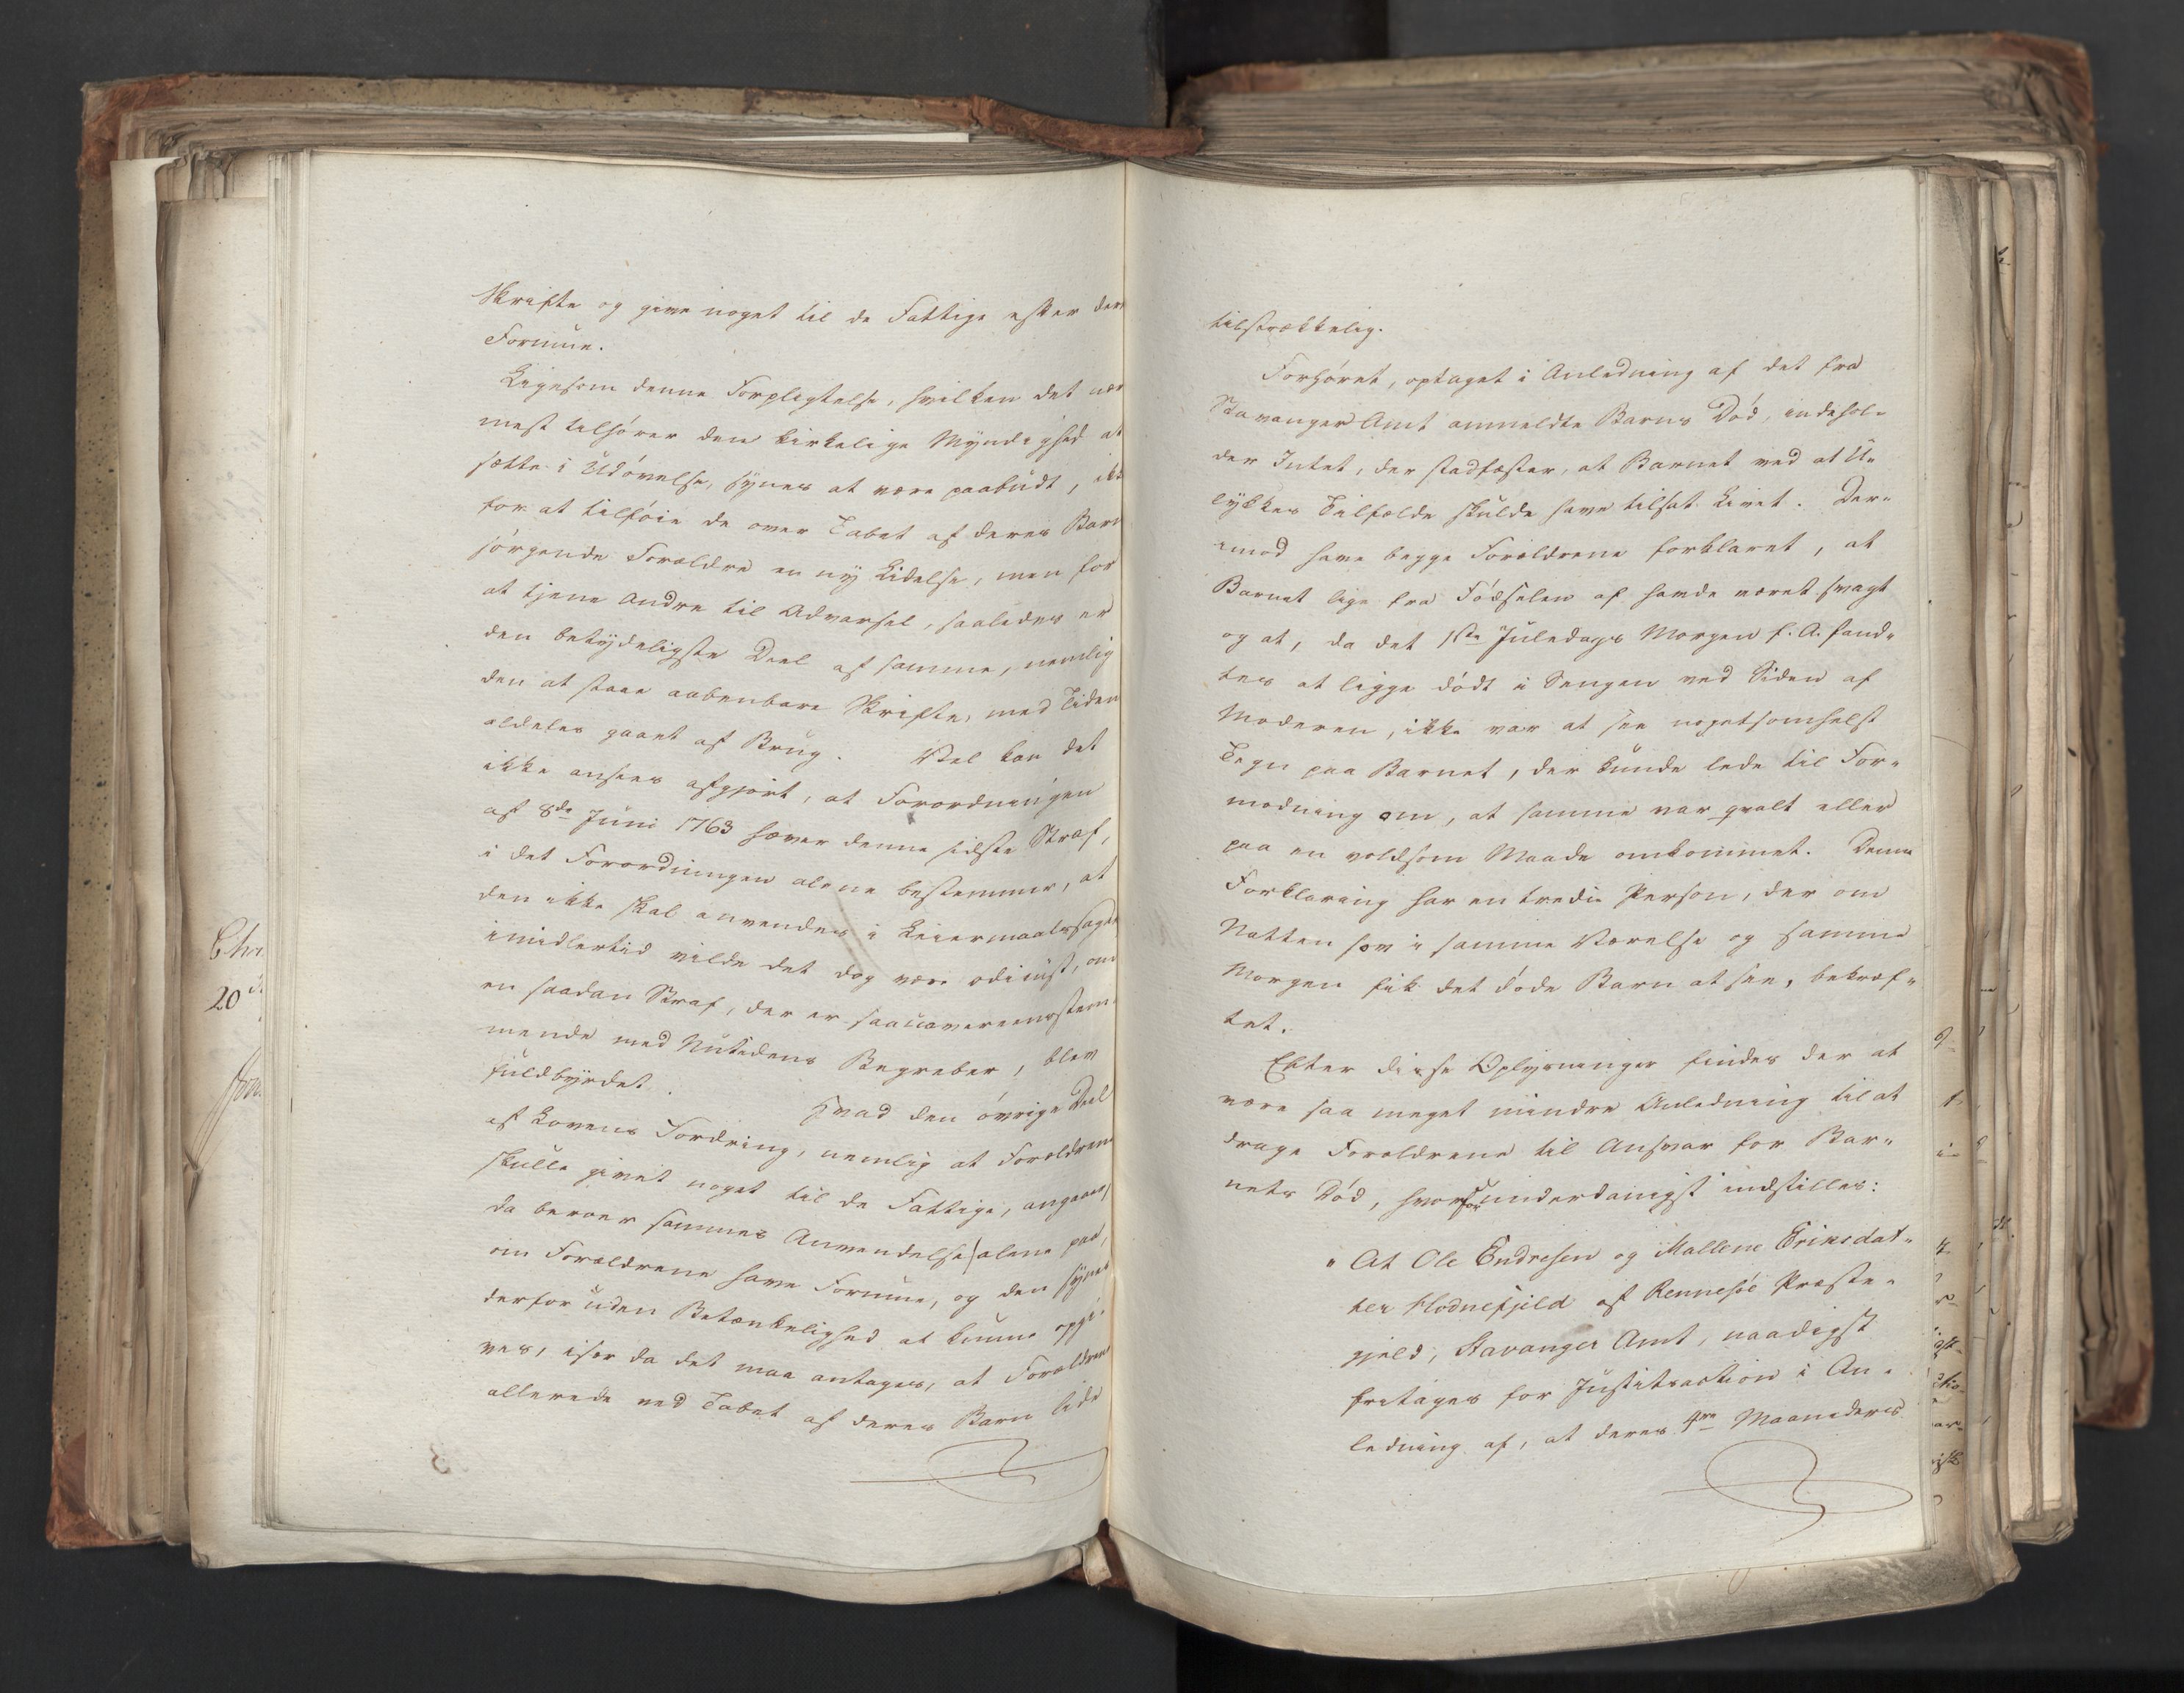 Skrifte og give noget til de Fattige efter der
Formue.
Ligesom denne Forpligtelse, hvilken det nær
mest tilhører den kirkelige Myndighed at
sætte i Udøvelse, synes at være paabudt, ikke
for at tilføie de over Tabet af deres Barn
sørgende Forældre en ny Lidelse, men for
at tjene Andre til Advarsel, saaledes er
den betydeligste Deel af samme, nemlig
den at staae aabenbare Skrifte, med Tiden
aldeles gaaet af Brug. Vel kan det
ikke ansees afgjort, at Forordningen
af 8de Juni 1763 hæver denne sidste Straf,
i det Forordningen alene bestemmer, at
den ikke skal anvendes i Leiermaalssager
imidlertid vilde det dog være odieust, om
en saadan Straf, der er saa uovereensstem
mende med Nutidens Begreber, blev
fuldbyrdet.
Hvad den øvrige Deel
af Lovens Fordring, nemlig at Forældrene
skulle givet noget til de Fattige, angaaer,
da beroer sammes Anvendelse alene paa,
om Forældrene have Formue, og den synes
derfor uden Betænkelighed at kunne opgi-
ves, især da det maa antages, at Forældrene
allerede ved Tabet af deres Barn lide
Chri
20
tilstrækkelig.
Forhøret, optaget i Anledning af det fra
Stavanger Amt anmeldte Barns Død, indehol-
der Intet, der stadfæster, at Barnet ved at U-
lykkes Tilfælde skulde have tilsat Livet. Der-
imod have begge Forældrene forklaret, at
Barnet lige fra Fødselen af havde været svagt
og at, da det 1ste Juledags Morgen f. A. fand-
tes at ligge dødt i Sengen ved Siden af
Moderen, ikke var at see nogetsomhelst
Tegn paa Barnet, der kunde lede til For-
modning om, at samme var qvalt eller
paa en voldsom Maade omkommet. Denne
Forklaring har en tredie Person, der om
Natten sov i samme Værelse og samme
Morgen fik det døde Barn at see, bekræf-
tet.
Efter disse Oplysninger findes der at
være saa meget mindre Anledning til at
drage Forældrene til Ansvar for Bar-
nets Død, hvorfor underdanigst indstilles:
"At Ole Endresen og Mallene Eriksdat-
ter Hodnefjeld af Rennesøe Præste-
gjeld, Stavanger Amt, naadigst
fritages for Justitsaction i An-
ledning af, at deres 4re Maaneders